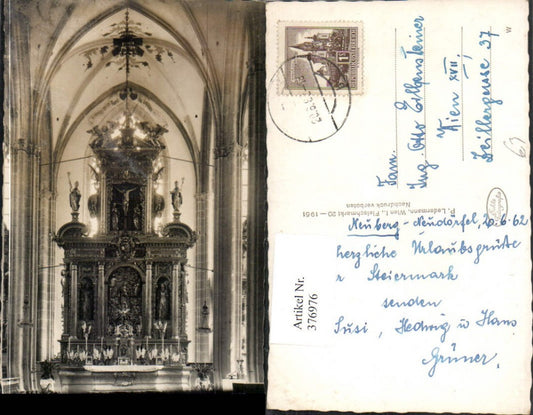 Fam.
Ing. Otto Ellensteiner
Wien XVII,
Zeillergasse 37
W
P. Ledermann, Wien I., Fleischmarkt 20 — 1951
Nachdruck verboten
Artikel Nr.
376976
Neuberg - 20.6.62
herzliche Urlaubsgrüße
Steiermark
senden
Susi, Hedwig u Hans
Grüner